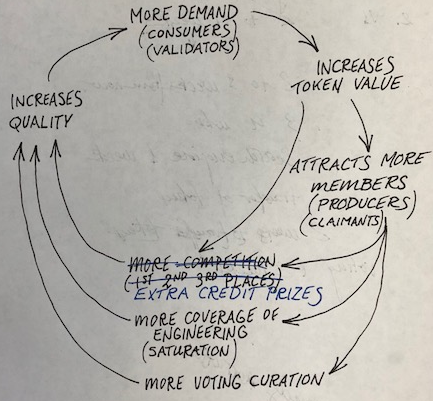 MORE DEMAND
(CONSUMERS)
(VALIDATORS)
INCREASES
TOKEN VALUE
INCREASES
QUALITY
ATTRACTS MORE
MEMBERS
(PRODUCERS)
(CLAIMANTS)
MORE COMPETITION
(1ST 2ND 3RD PLACES)
EXTRA CREDIT PRIZES
MORE COVERAGE OF
ENGINEERING
(SATURATION)
MORE VOTING CURATION